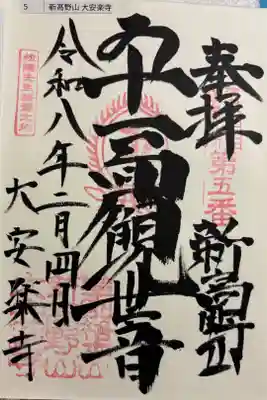 5 新高野山 大安楽寺
奉拝
第五番
新高野山
十一面観世音
令和八年二月四日
大安楽寺